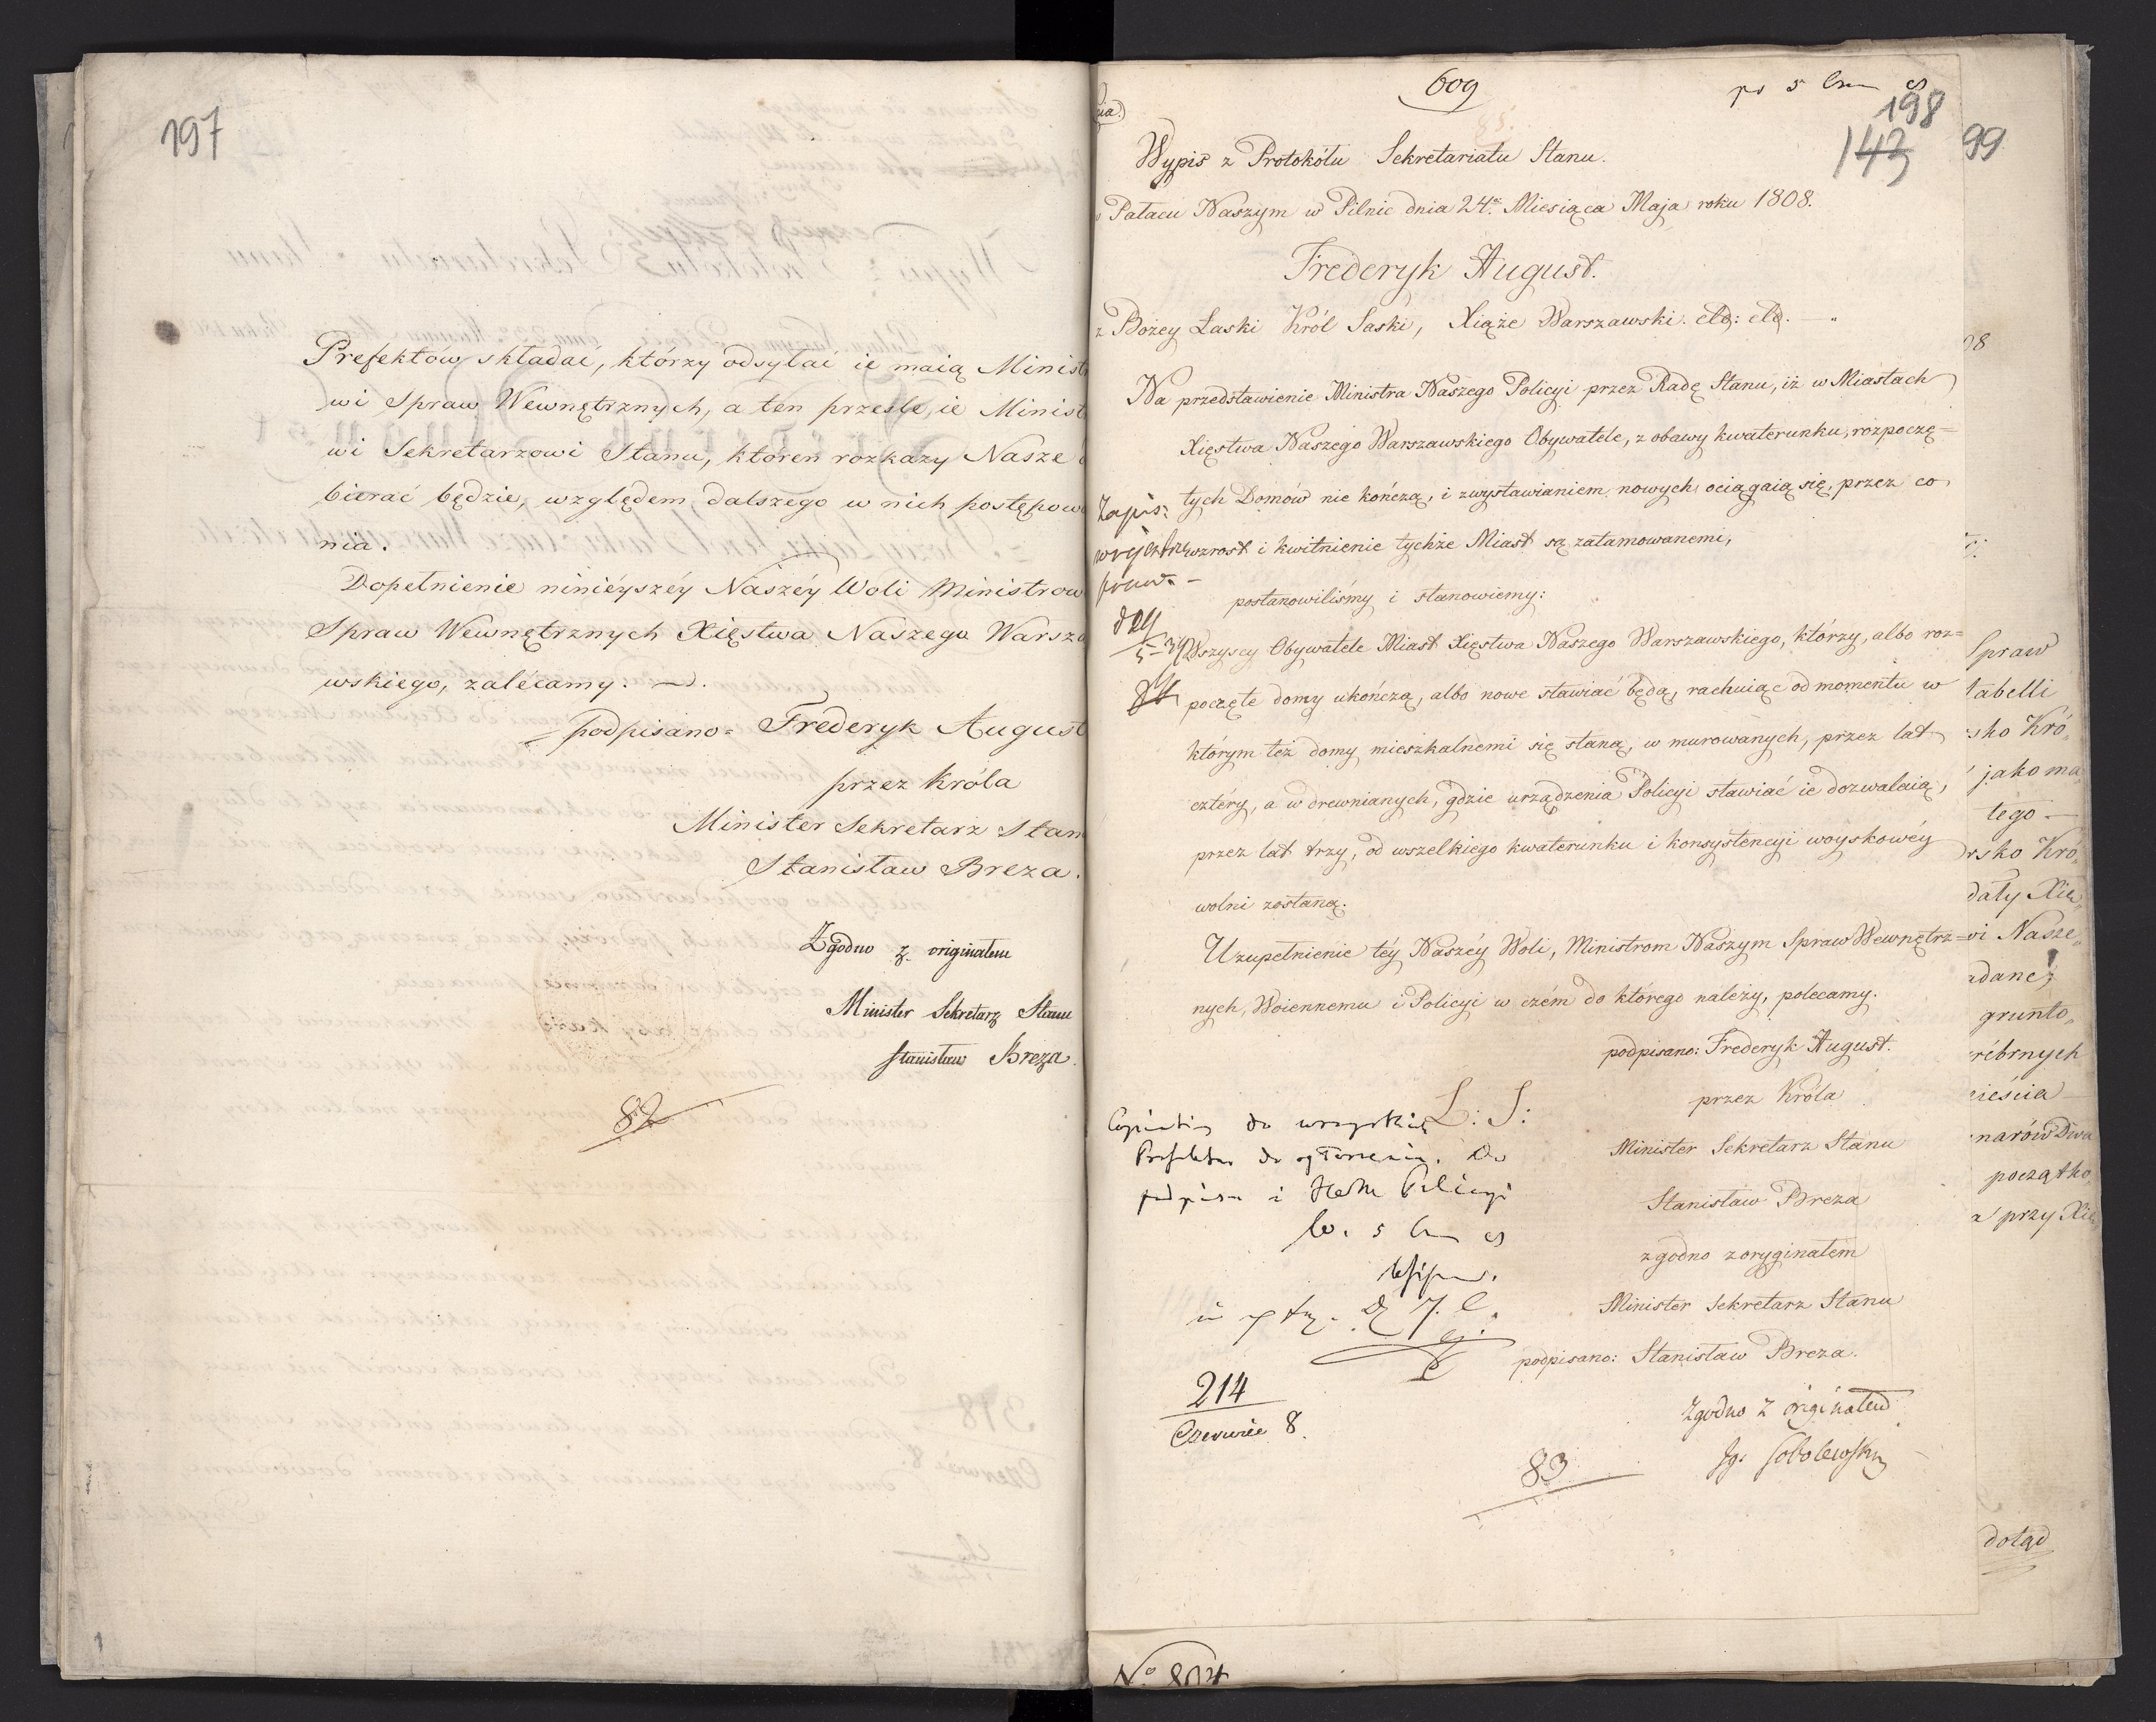 197
Prefektów składać, którzy odsyłać ie maią Minist
wi Spraw Wewnętrznych, a ten prześle ie Minist
wi Sekretarzowi Stanu, ktoren rozkazy Nasze
bierać będzie, względem dalszego w nich postępow
nia.
Dopełnienie niniéyszéy Naszéy Woli Ministrow
Spraw Wewnętrznych Xięstwa Naszego Warsza
wskiego, zalécamy.
podpisano = Fréderyk August
przez Króla
Minister Sekretarz Stan
Stanisław Breza.
Zgodno z originałem
Minister Sekretarz Stanu
Stanisław Breza.
82
609
198
143
Wypis z Protokółu Sekretariatu Stanu.
Pałacu Naszym w Pilnic dnia 24º Miesiąca Maja roku 1808.
Frederyk August.
z Bożey Łaski Król Saski, Xiąże Warszawski. etc: etc.
Na przedstawienie Ministra Naszego Policyi przez Radę Stanu, iż w Miastach
Xięstwa Naszego Warszawskiego Obywatele, z obawy kwaterunku, rozpoczę=
tych Domów nie kończą, i z wystawianiem nowych ociągaią się, przez co
wzrost i kwitnienie tychże Miast są zatamowanemi,
postanowiliśmy i stanowiemy:
Wszyscy Obywatele Miast Xięstwa Naszego Warszawskiego, którzy, albo roz=
poczęte domy ukończą, albo nowe stawiać będą, rachuiąc od momentu w
którym też domy mieszkalnemi się staną, w murowanych, przez lat
cztéry, a w drewnianych, gdzie urządzenia Policyi stawiać ie dozwalaią,
przez lat trzy, od wszelkiego kwaterunku i konsystencyi woyskowéy
wolni zostaną.
Uzupełnienie téy Naszéy Woli, Ministrom Naszym Spraw Wewnętrz=
nych, Woiennemu i Policyi w czém do którego należy, polecamy.
podpisano: Frederyk August.
L: S:
przez Króla
Minister Sekretarz Stanu
Stanisław Breza
zgodno z oryginałem
Minister Sekretarz Stanu
podpisano: Stanisław Breza.
Zgodno z originałem
Ig. Sobolewski
do wszystkich
do ogłoszenia. Do
podpisu i Hr. Policyi
214
Czerwiec 8.
83
No 804
99
08
Spraw
tabelli
sko Kró„
jako ma
tego —
rsko Kró„
dały Xię„
wi Nasze„
adane,
grunto„
rébrnych
ieścia
narów Dwa
początko„
przy Xię„
dotąd